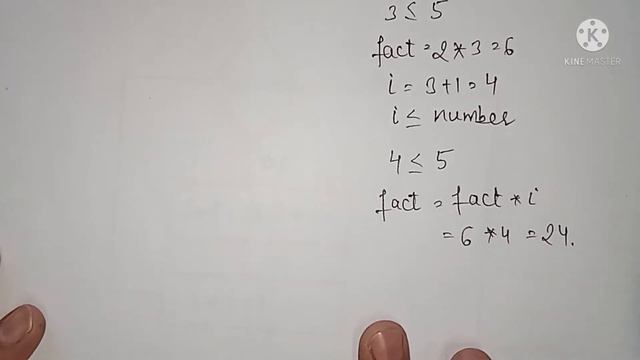 3 ≤ 5
fact = 2 * 3 = 6
i = 3 + 1 = 4
i ≤ number
4 ≤ 5
fact = fact * i
= 6 * 4 = 24.
K
KINEMASTER